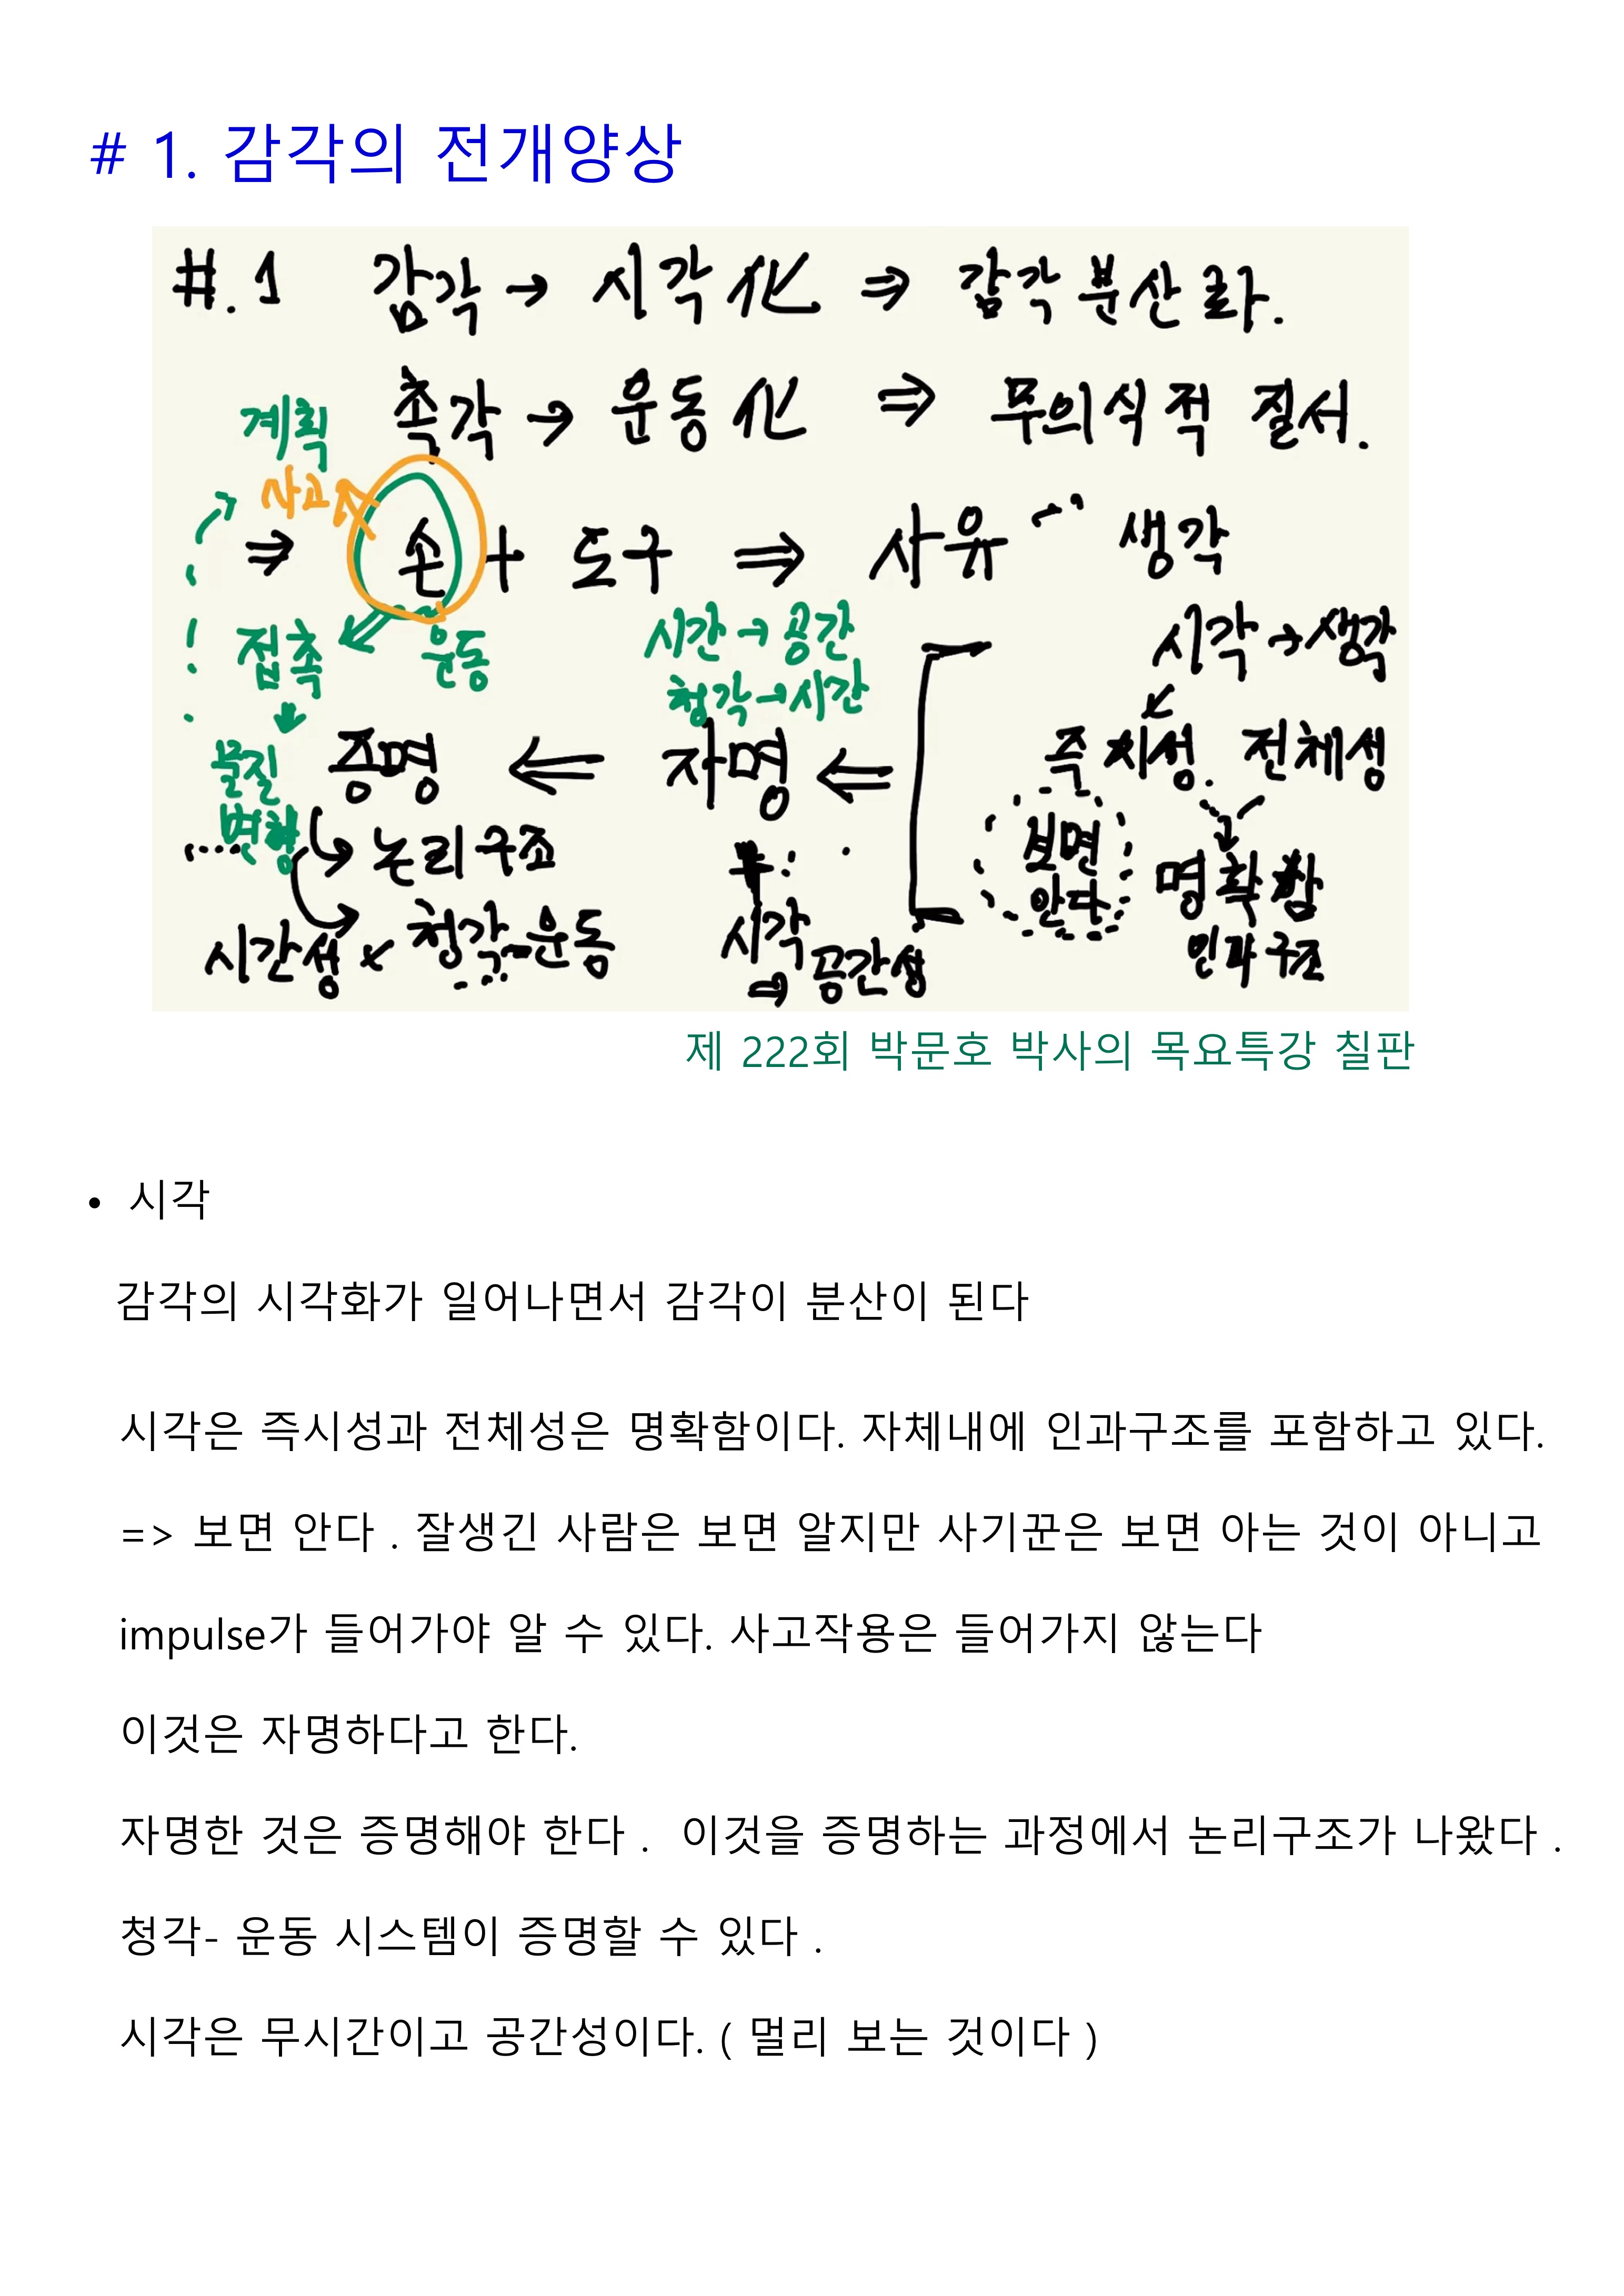 # 1. 감각의 전개양상
#.1 감각 → 시각化 ⇒ 감각분산
촉각 → 운동化 ⇒ 무의식적 질서.
계획
사고
⇒ 손 + 도구 ⇒ 사유 생각
접촉 운동
시간→공간
청각→시간
시각→생각
물질
변형
증명 ⇐ 자명 ⇐
즉시성. 전체성
보면
안다
명확함
인과구조
논리구조
시간성 × 청각-운동
무
시각
⇒ 공간성
제 222회 박문호 박사의 목요특강 칠판
• 시각
감각의 시각화가 일어나면서 감각이 분산이 된다
시각은 즉시성과 전체성은 명확함이다. 자체내에 인과구조를 포함하고 있다.
=> 보면 안다 . 잘생긴 사람은 보면 알지만 사기꾼은 보면 아는 것이 아니고
impulse가 들어가야 알 수 있다. 사고작용은 들어가지 않는다
이것은 자명하다고 한다.
자명한 것은 증명해야 한다 . 이것을 증명하는 과정에서 논리구조가 나왔다 .
청각- 운동 시스템이 증명할 수 있다 .
시각은 무시간이고 공간성이다. ( 멀리 보는 것이다 )